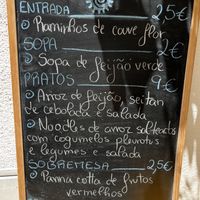 ENTRADA 2,5€
Raminhos de couve flor
SOPA 2€
Sopa de feijão verde
PRATOS 9€
Arroz de feijão, seitan
de cebolada e salada
Noodles de arroz salteados
com cogumelos pleurotus
e legumes e salada
SOBREMESA 2,5€
Panna cotta de frutos
vermelhos